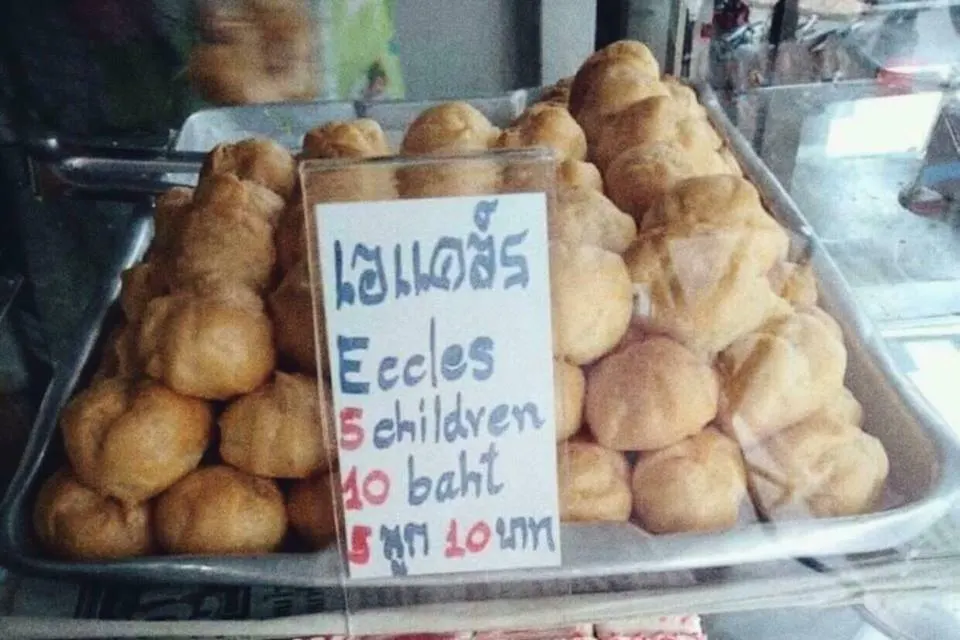 เอแคล์ร
Eccles
5 children
10 baht
5 ลูก 10 บาท